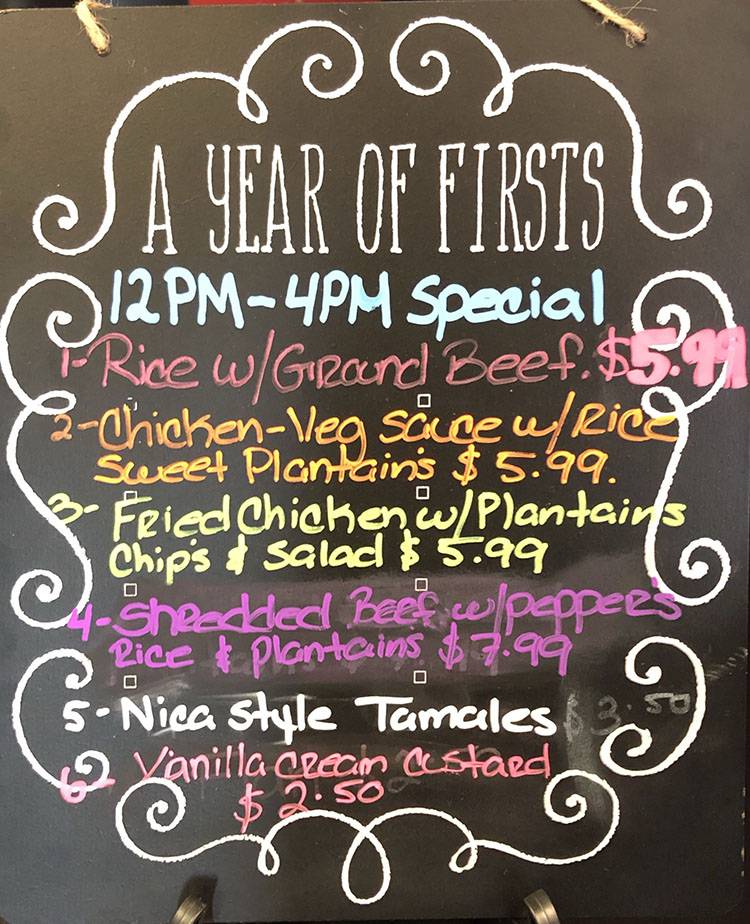 A YEAR OF FIRSTS
12PM-4PM Special
1-Rice w/Ground Beef. $5.99
2-Chicken-Veg Sauce w/Rice
Sweet Plantain's $5.99.
3-Fried Chicken w/Plantains
Chip's & Salad $5.99
4-Shredded Beef w/pepper's
Rice & Plantains $7.99
5-Nica Style Tamales $3.50
6- Vanilla Cream Custard
$2.50